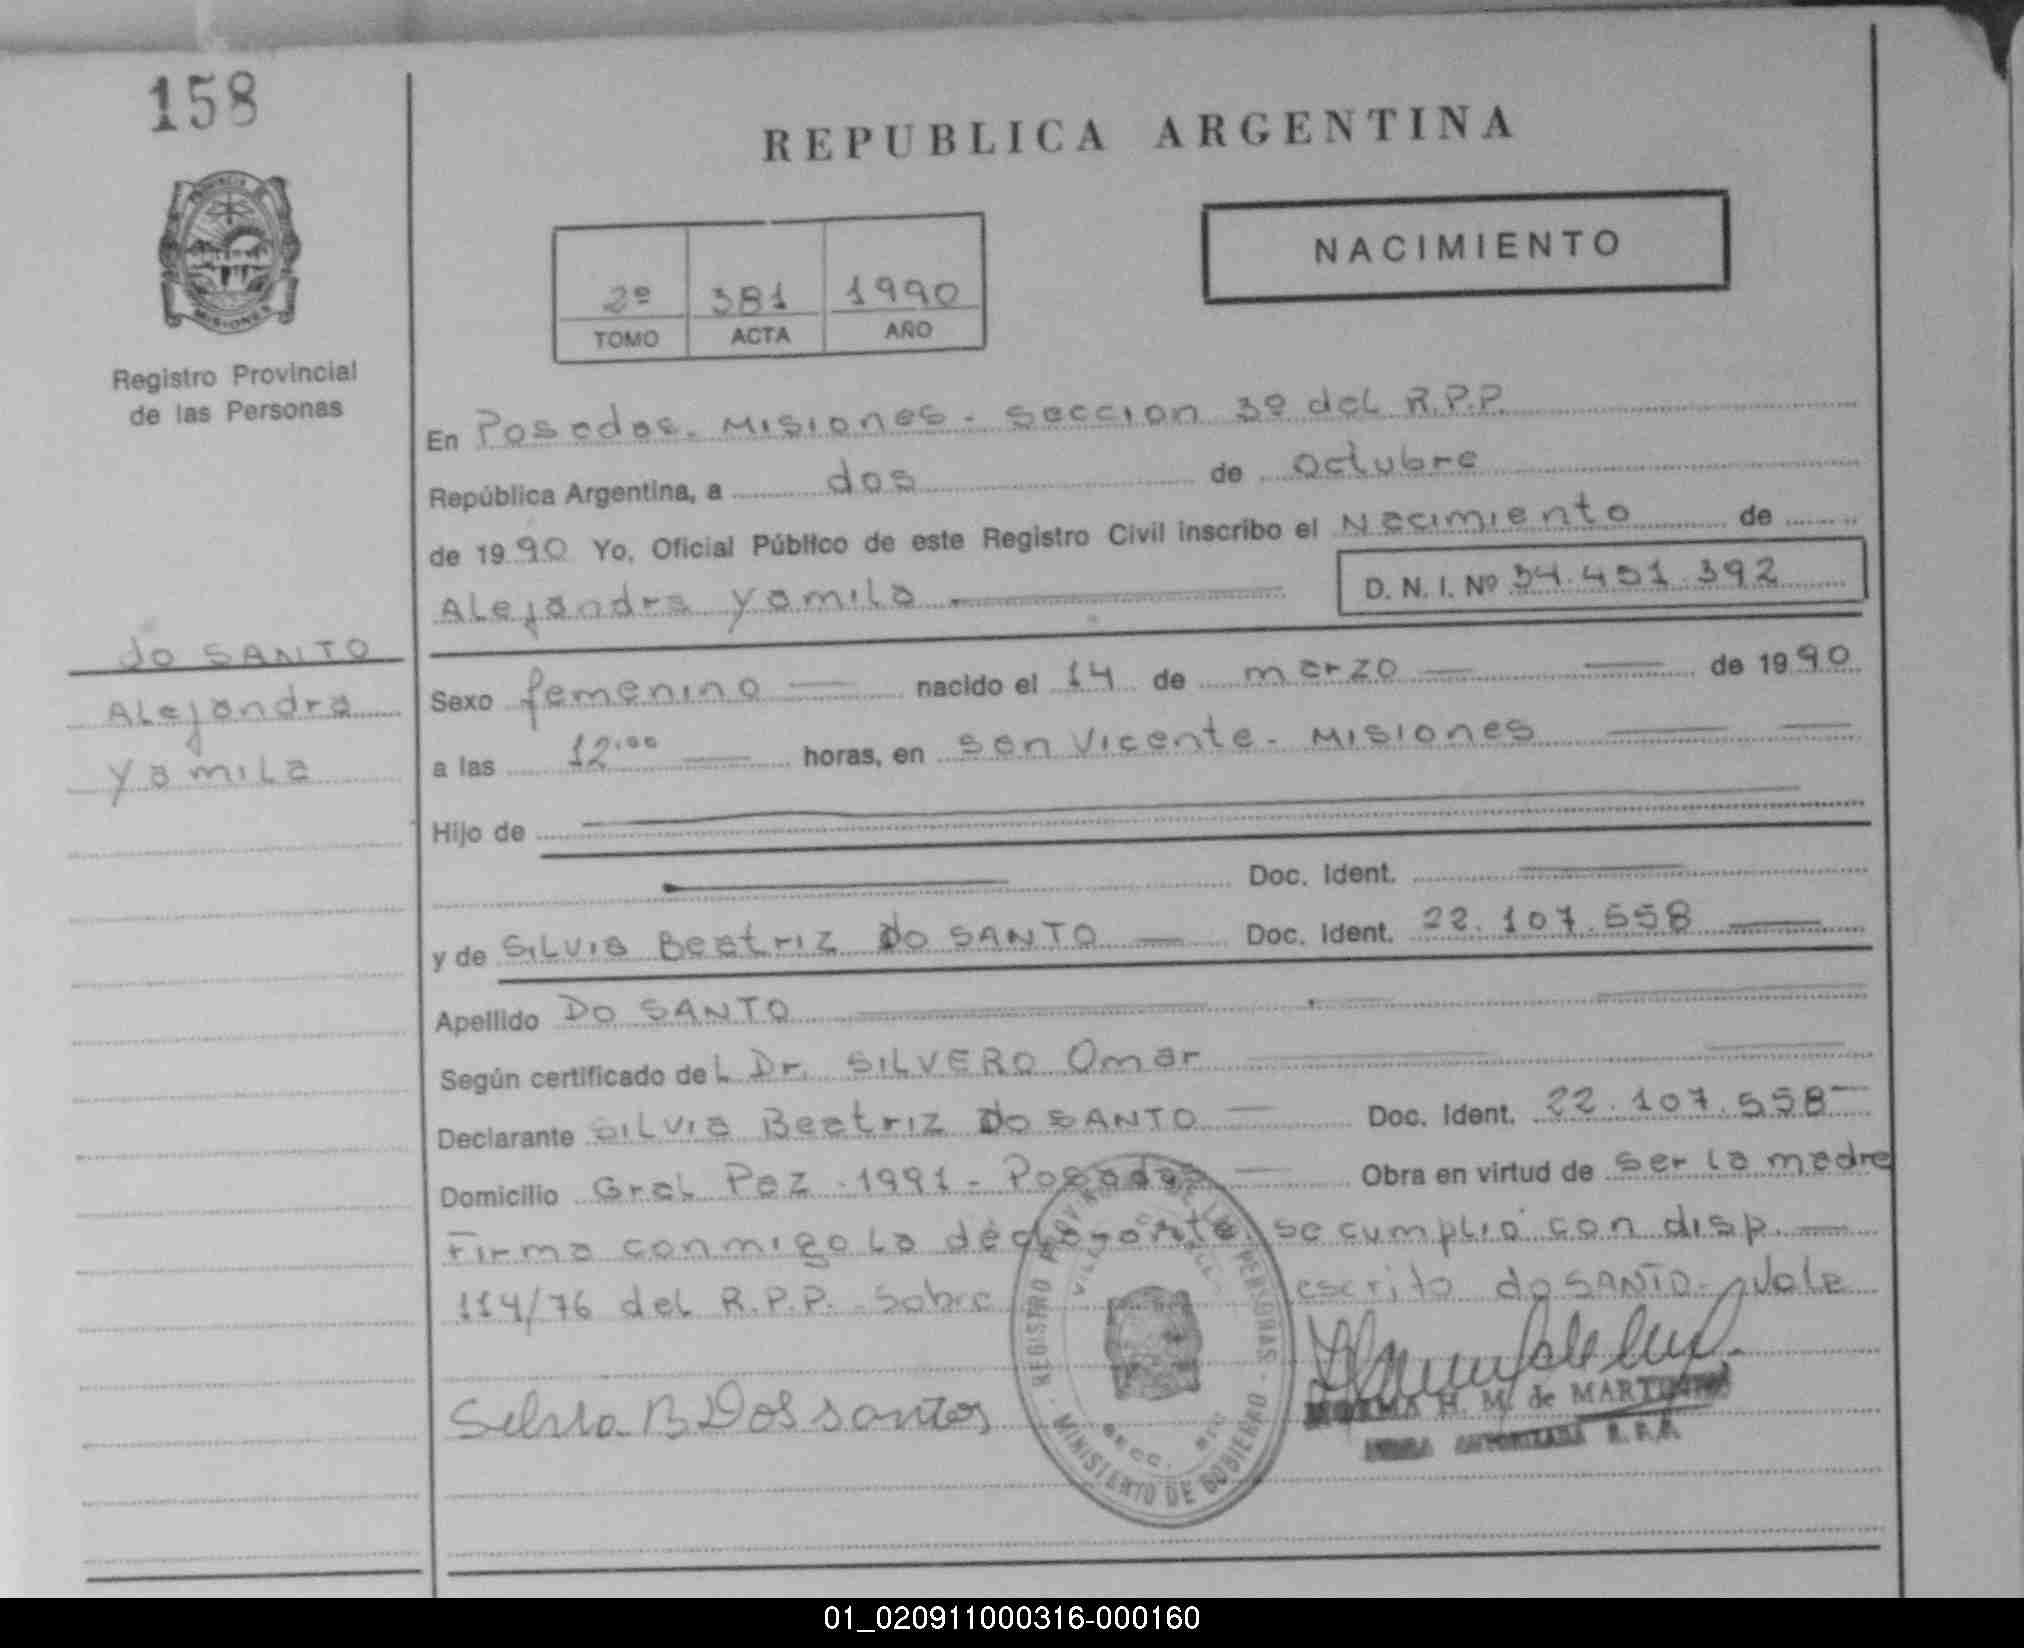 158
REPUBLICA ARGENTINA
NACIMIENTO
2º 381 1990
TOMO ACTA AÑO
MISIONES
Registro Provincial
de las Personas
En Posadas. Misiones - Seccion 3º del R.P.P.
República Argentina, a dos de octubre
de 1990 Yo, Oficial Público de este Registro Civil inscribo el Nacimiento de
Alejandra Yamila D. N. I. Nº 34.451.392
do SANTO
Alejandra
Yamila
Sexo femenino nacido el 14 de marzo de 1990
a las 12.00 horas, en San Vicente - Misiones
Hijo de
Doc. Ident.
y de Silvia Beatriz do SANTO Doc. Ident. 22.107.558
Apellido DO SANTO
Según certificado del Dr. SILVERO Omar
Declarante Silvia Beatriz Do SANTO Doc. Ident. 22.107.558
Domicilio Gral Paz - 1991 - Posadas Obra en virtud de ser la madre
Firma conmigo la declarante. se cumplió con disp.
114/76 del R.P.P. Sobre escrito do SANTO - Vale
Silvia B Dos santos
NORMA H. M. de
FIRMA AUTORIZADA R.P.P.
REGISTRO PROVINCIAL DE LAS PERSONAS
SECC.
MINISTERIO DE GOBIERNO
01_020911000316-000160